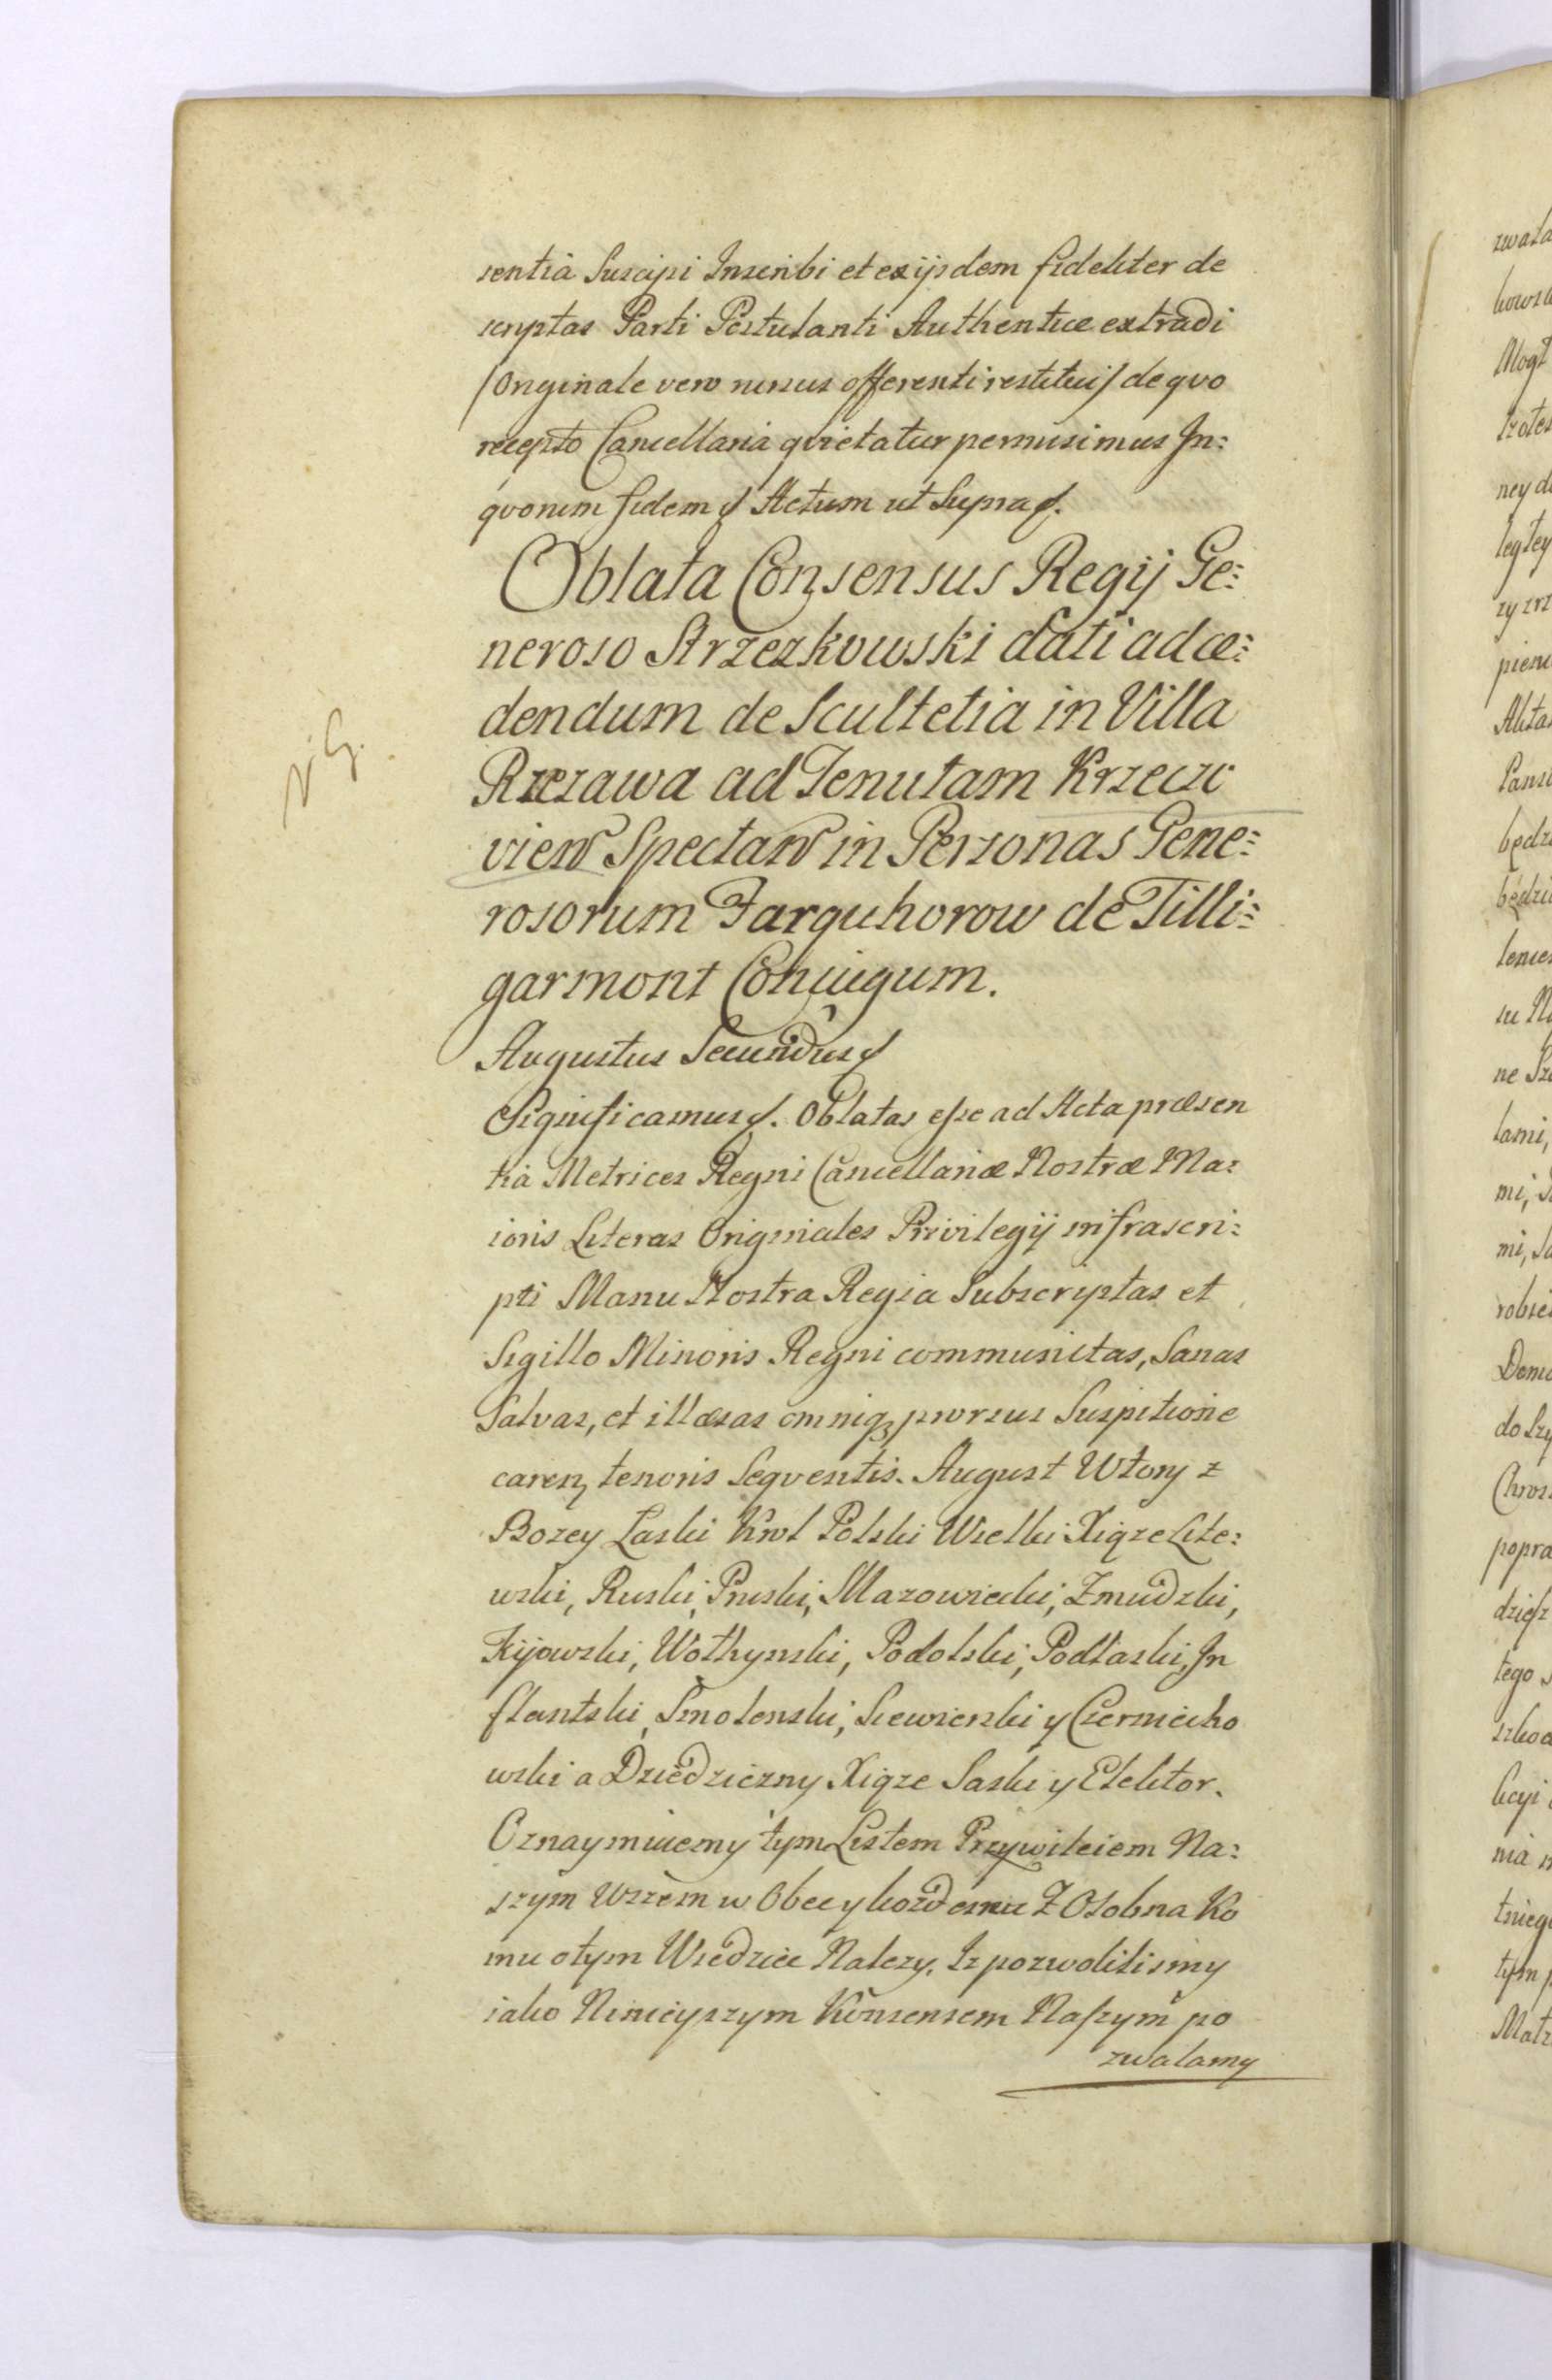 sentia Suscipi Inscribi et ex ijsdem fideliter de
scriptas Parti Postulanti Authentice extradi
/Originale vero rursus offerenti restitui/ de qvo
recepto Cancellaria qvietatur permisimus In:
qvorum fidem &. Actum ut Supra &.
Oblata Consensus Regij Ge:
neroso Strzezkowski dati ad ce:
dendum de Scultetia in Villa
Rzezawa ad Tenutam Krzeczo
vien Spectan in Personas Gene:
rosorum Farquhorow de Tilli:
garmont Coniugum.
Augustus Secundus &
Significamus &. Oblatas esse ad Acta præsen
tia Metrices Regni Cancellariæ Nostræ Ma:
ioris Literas Originales Privilegij infrascri:
pti Manu Nostra Regia Subscryptas et
Sigillo Minoris Regni communitas, Sanas
Salvas, et illæsas omniq3 prorsus Suspitione
caren tenoris Seqventis. August Wtory z
Bozey Laski Krol Polski Wielki Xiąze Lite:
wski, Ruski, Pruski, Mazowiecki, Zmudzki,
Kijowski, Wołhynski, Podolski, Podlaski, In
flantski, Smolenski, Siewierski y Czerniecho
wski a Dziedziczny Xiąze Saski y Elektor.
Oznaymuiemy tym Listem Przywileiem Na:
szym Wszem w Obec y kozdemu Z Osobna Ko
mu o tym Wiedziec Nalezy. Iz pozwolilismy
iako Ninieyszym Konsensem Naszym po
zwalamy